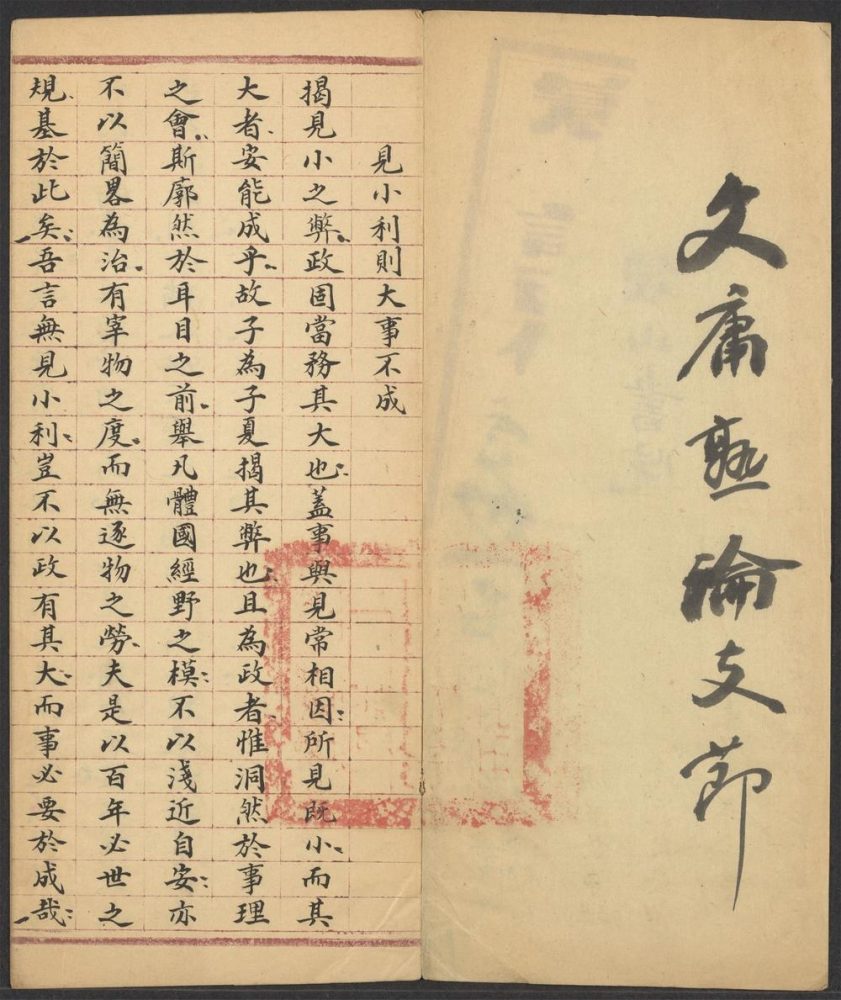 文庸熟論支節
見小利則大事不成
揭見小之弊政固當務其大也蓋事與見常相因所見既小而其
大者安能成乎故子為子夏揭其弊也且為政者惟洞然於事理
之會斯廓然於耳目之前舉凡體國經野之模不以淺近自安亦
不以簡畧為治有宰物之度而無逐物之勞夫是以百年必世之
規基於此矣吾言無見小利豈不以政有其大而事必要於成哉